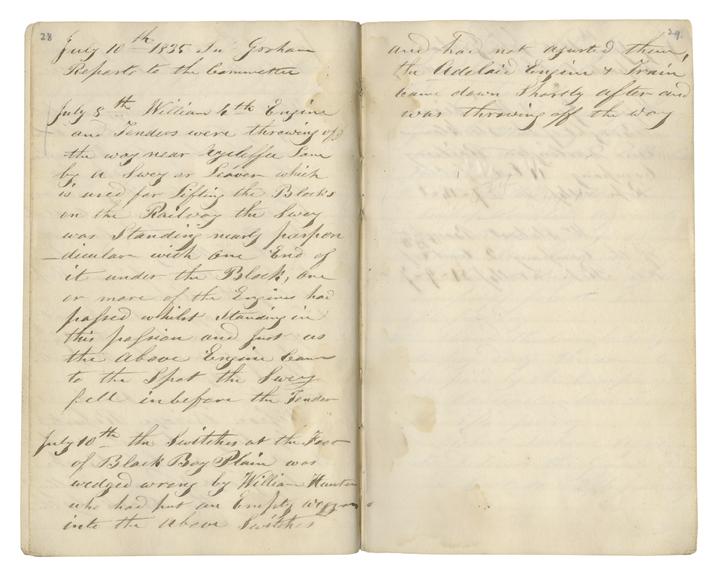 28
July 10th 1835 Jn Graham
Reports to the Committee
July 8th William 4th Engine
and Tenders were throwing off
the way near Aycliffe Lane
by a Swey or Leaver which
is used for Lifting the Blocks
on the Railway the Swey
was Standing nearly perpen
-dicular with one End of
it under the Block, one
or more of the Engines had
passed whilst Standing in
this possion and Just as
the Above Engine Came
to the Spot the Swey
fell in before the Tender
July 10th the Switches at the Foot
of Black Boy Plain was
wedged wrong by William Hunter
who had put an Empty Waggon
into the Above Switches
29
and had not ajusted them,
the Adelaid Engine & Train
came down Shortly after and
was throwing off the way